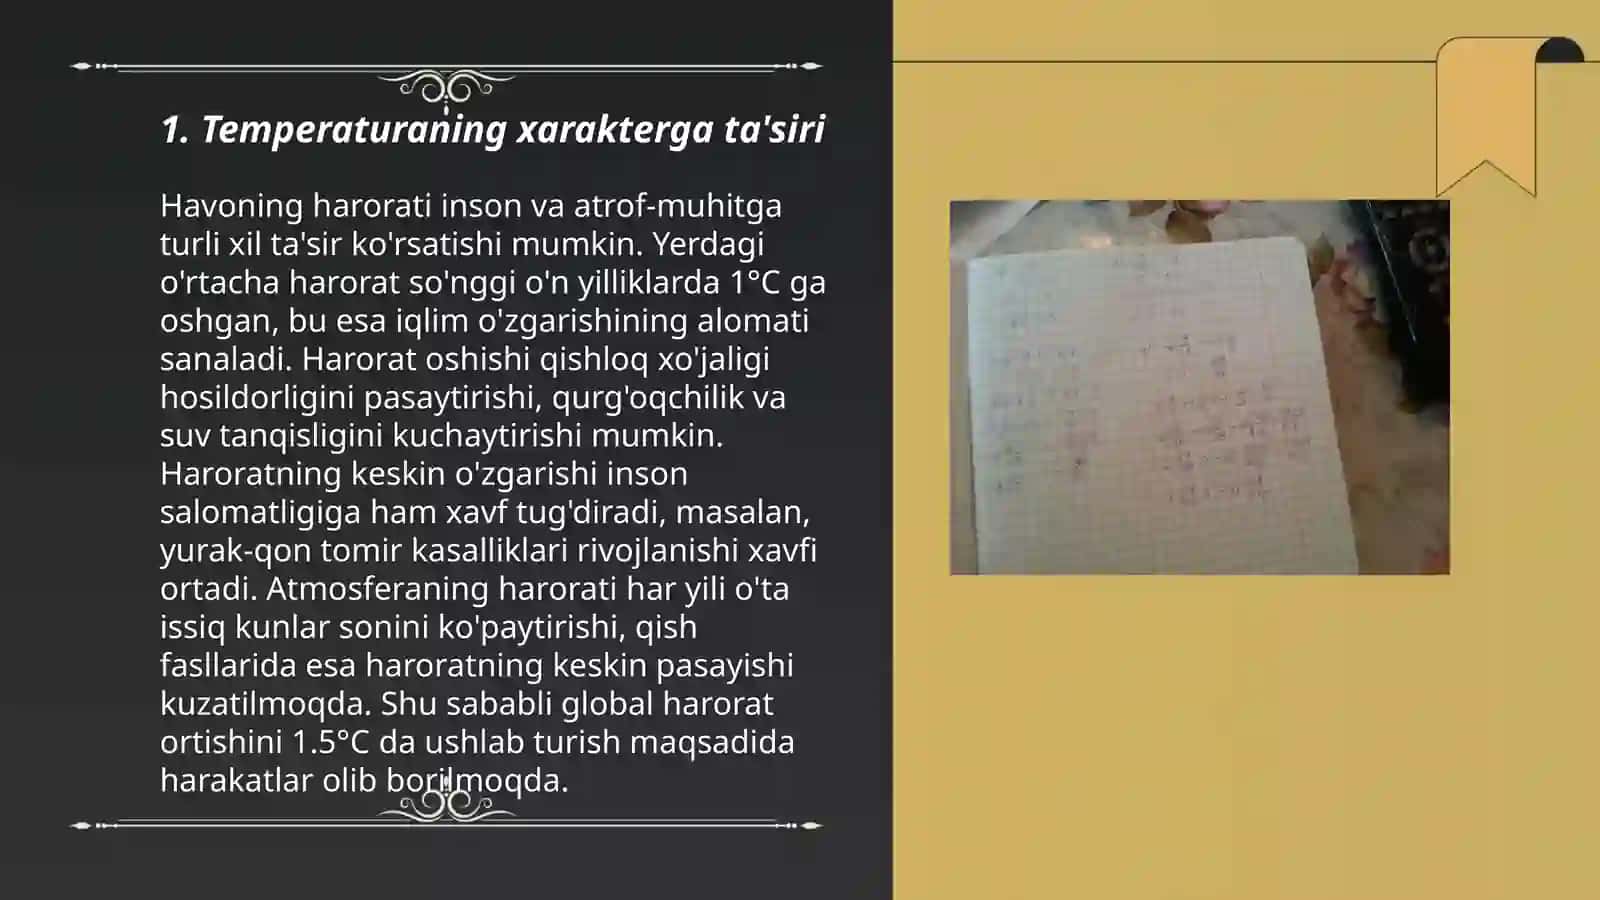 1. Temperaturaning xarakterga ta'siri
Havoning harorati inson va atrof-muhitga
turli xil ta'sir ko'rsatishi mumkin. Yerdagi
o'rtacha harorat so'nggi o'n yilliklarda 1°C ga
oshgan, bu esa iqlim o'zgarishining alomati
sanaladi. Harorat oshishi qishloq xo'jaligi
hosildorligini pasaytirishi, qurg'oqchilik va
suv tanqisligini kuchaytirishi mumkin.
Haroratning keskin o'zgarishi inson
salomatligiga ham xavf tug'diradi, masalan,
yurak-qon tomir kasalliklari rivojlanishi xavfi
ortadi. Atmosferaning harorati har yili o'ta
issiq kunlar sonini ko'paytirishi, qish
fasllarida esa haroratning keskin pasayishi
kuzatilmoqda. Shu sababli global harorat
ortishini 1.5°C da ushlab turish maqsadida
harakatlar olib borilmoqda.